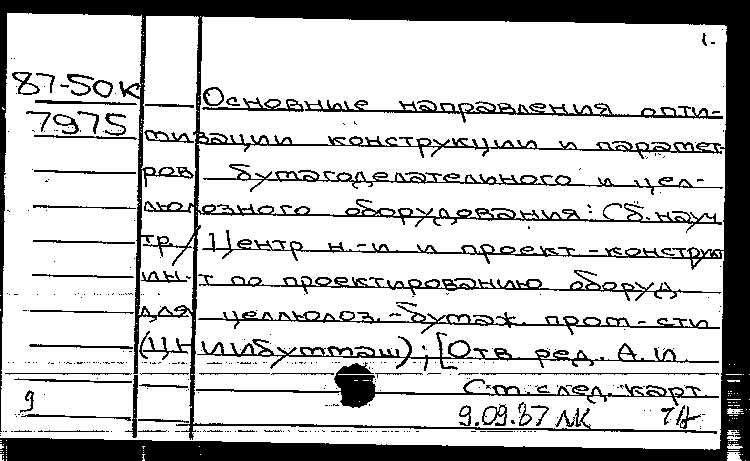 1.
87-50к
7975
Основные направления опти-
мизации конструкции и парамет-
ров бумагоделательного и цел-
люлозного оборудования: Сб. науч.
тр. / Центр н.-и. и проект.-конструк.
ин-т по проектированию оборуд.
для целлюлоз.-бумаж. пром-сти
(ЦНИИБуммаш); [Отв. ред. А. И.
См. след. карт.
9
9.09.87 ЛК